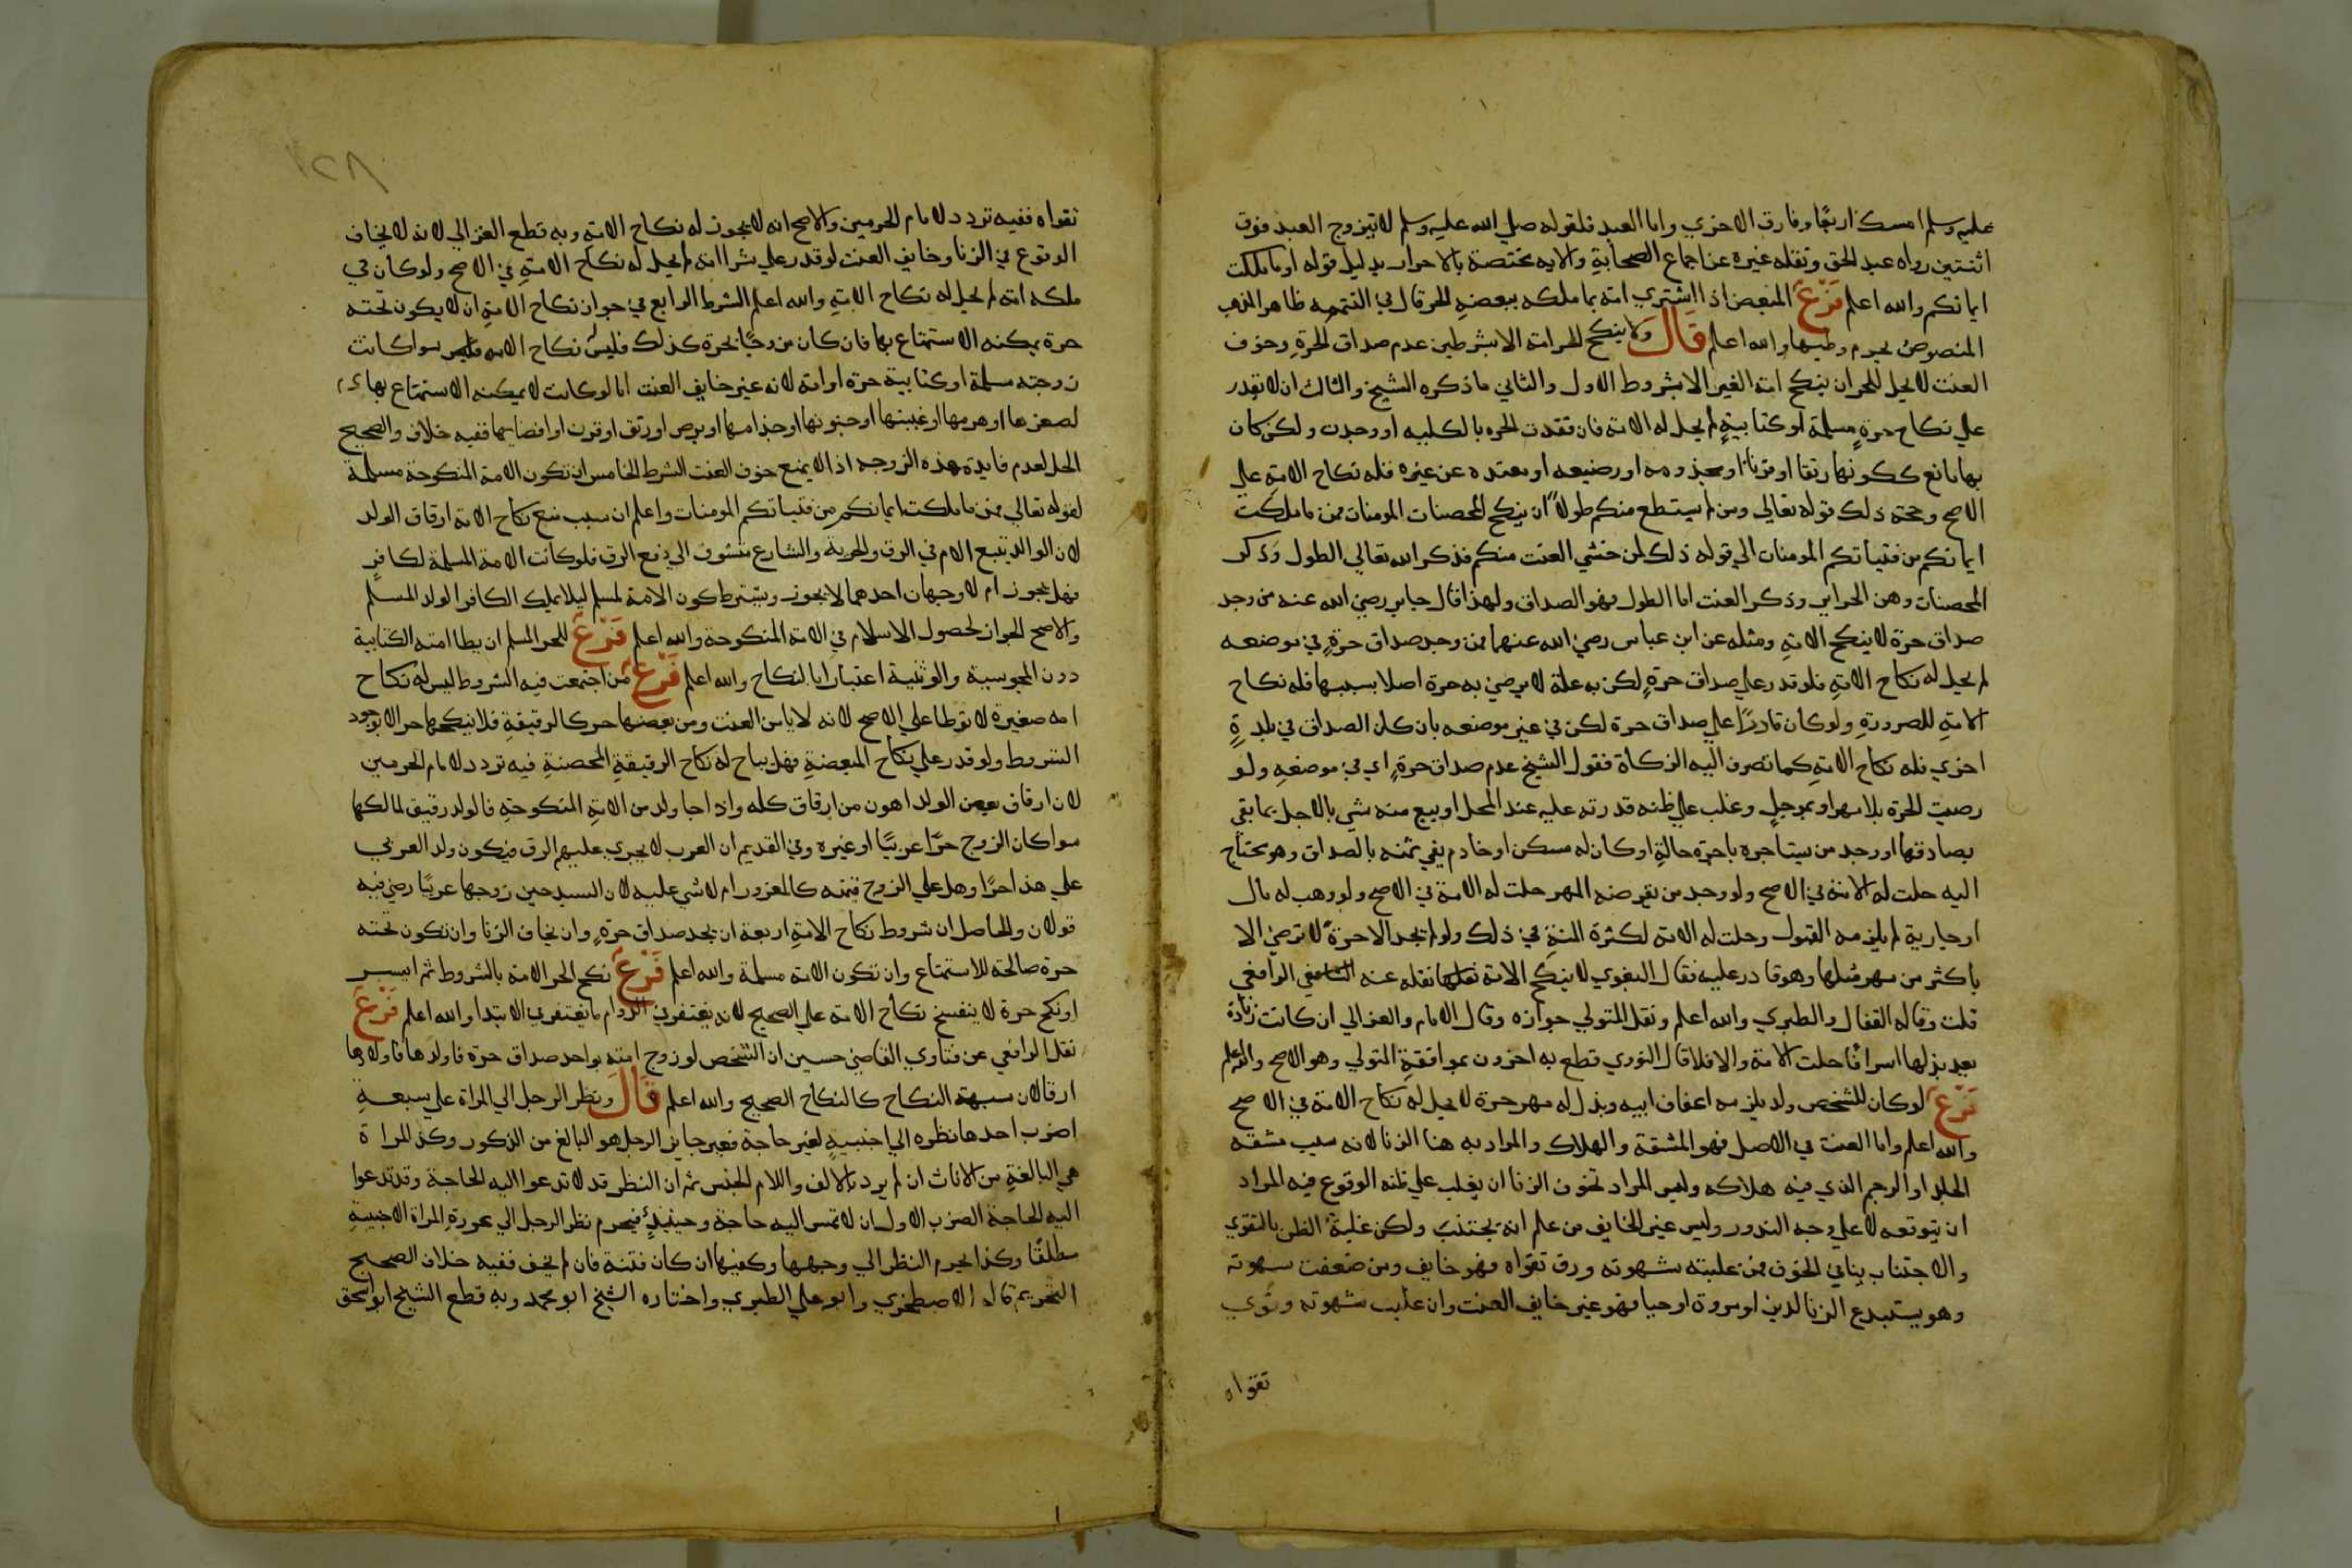 عليه وسلم امسك اربعًا وفارق الاخري واما العبد فلقوله صلي الله عليه وسلم لا يتزوج العبد فوق
اثنتين رواه عبد الحق ونقله غيره عن اجماع الصحابةِ والايه مختصة بالاحرار بدليل قوله او ما ملكت
ايمانكم والله اعلم فَرْعٌ المبعض اذا اشتري امة بما ملكه ببعضهِ الحر قال في التتمه ظاهر المذهب
المنصوص يحرم وطيها والله اعلم قَالَ وَلا ينكح الحر امة الا بشرطين عدم صداق الحرةِ وخوف
العنت لا يحل للحر ان ينكح امة الغير الا بشروط الاول والثاني ما ذكره الشيخ والثالث ان لا تقدر
علي نكاح حرةٍ مسلمة او كتابيةٍ لم يحل له الامة فان فقدت الحره بالكليه او وجدت ولكن كان
بها مانع ككونها رتقا او قرنا او مجذومه او رضيعه او معتده عن غيره فله نكاح الامةِ علي
الاصح وحجة ذلك قوله تعالي ومن لم يستطع منكم طولاً ان ينكح المحصنات المومنات فمن ما ملكت
ايمانكم من فتياتكم المومنات الي قوله ذلك لمن خشي العنت منكم فذكر الله تعالي الطول وذكر
المحصنات وهن الحراير وذكر العنت اما الطول فهو الصداق ولهذا قال جابر رضي الله عنه من وجد
صداق حرة لا ينكح الامةِ ومثله عن ابن عباس رضي الله عنهما فمن وجد صداق حرةٍ في موضعه
لم يحل له نكاح الامةِ فلو قدر علي صداق حرةٍ لكن به علة لا ترضي به حرة اصلا بسببها فله نكاح
الامةِ للضرورةِ ولو كان قادرًا علي صداق حرة لكن في غير موضعه بان كان الصداق في بلدةٍ
اخري فله نكاح الامةِ كما تصرف اليه الزكاة فقول الشيخ عدم صداق حرةٍ اي في موضعهِ ولو
رضيت الحرة بلا مهر او بموجلٍ وغلب علي ظنه قدرته عليه عند المحل او بيع منه شي بالاجل بما يفي
بصادقها او وجد من يستاجره باجرة حالةِ او كان له مسكن او خادم يفي ثمنه بالصداق وهو محتاج
اليه حلت له الامة في الاصح ولو وجد من يقرضه المهر حلت له الامة في الاصح ولو وهب له مال
او جارية لم يلزمه القبول وحلت له الامة لكثرة المنةِ في ذلك ولو لم تجد الا حرةً لا ترضي الا
باكثر من مهر مثلها وهو قادر عليه فقال البغوي لا ينكح الامة نقله عنه الرافعي
قلت وقاله القفال والطبري والله اعلم ونقل المتولي جوازه وقال الامام والغزالي ان كانت زيادة
يعد بذلها اسرافًا حلت الامة والا فلا قال النوري قطع به اخرون بموافقةِ المتولي وهو الاصح والله اعلم
فَرْعٌ لو كان للشخص ولد يلزمه اعفاف ابيه وبذل له مهر حرة لا يحل له نكاح الامة في الاصح
والله اعلم واما العنت في الاصل فهو المشقة والهلاك والمراد به هنا الزنا لانه سبب مشقه
الجلد او الرجم الذي فيه هلاكه وليس المراد بخوف الزنا ان يغلب علي ظنه الوقوع فيه المراد
ان يتوقعه لا علي وجه الندور وليس غير الخايف من علم انه يجتنب ولكن غلبة الظن بالتقوي
والاجتناب ينافي الخوف فمن غلبته شهوته ورق تقواه فهو خايف ومن ضعفت شهوته
وهو يستبدع الزنا لدين او مروة او حيا فهو غير خايف العنت وان غلبت شهوته وقوي
تقواه
١٢٨
تقواه ففيه تردد لامام الحرمين والاصح انه لا يجوز له نكاح الامةِ وبه قطع الغزالي لانه لا يخاف
الوقوع في الزنا وخايف العنت لو قدر علي شرا امة لم يحل له نكاح الامةِ في الاصح ولو كان في
ملكه امة لم يحل له نكاح الامةِ والله اعلم الشرط الرابع في جواز نكاح الامةِ ان لا يكون تحته
حرة يمكنه الاستمتاع بها فان كان مزوجًا بحرة كذلك فليس نكاح الامه سوا كانت
زوجته مسلمة او كتابية حرة او امة لانه غير خايف العنت اما لو كانت لا يمكنه الاستمتاع بها
لصغرها او هرمها او غيبتها او جنونها او جذامها او برص او رتق او قرن او افضايها ففيه خلاف والصحيح
الحل لعدم فايدة هذه الزوجه اذ لا يمنع خوف العنت الشرط الخامس ان تكون الامة المنكوحة مسلمة
لقوله تعالي فمن ما ملكت ايمانكم من فتياتكم المومنات واعلم ان سبب منع نكاح الامة ارقاق الولد
لان الوالد يتبع الام في الرق والحرية والشارع متشوف الي دفع الرق فلو كانت الامة المسلمة لكافرٍ
فهل يجوز ام لا وجهان احدهما لا يجوز ويشترط كون الامة لمسلم ليلا يملك الكافر الولد المسلم
والاصح الجواز لحصول الاسلام في الامة المنكوحة والله اعلم فَرْعٌ للحر المسلم ان يطا امته الكتابية
دون المجوسية والوثنية اعتبارا بالنكاح والله اعلم فَرْعٌ من اجتمعت فيه الشروط ليس له نكاح
امه صغيرة لا توطا علي الاصح لانه لا يامن العنت ومن بعضها حر كالرقيقةِ فلا ينكحها حر الا بوجود
الشروط ولو قدر علي نكاح المبعضةِ فهل يباح له نكاح الرقيقةِ المحصنةِ فيه تردد لامام الحرمين
لان ارقاق بعض الولد اهون من ارقاق كله واذا جا ولد من الامةِ المنكوحةِ فالولد رقيق لمالكها
سوا كان الزوج حرًا عربيًا او غيره وفي القديم ان العرب لا يجري عليهم الرق فيكون ولد العربي
علي هذا حرًا وهل علي الزوج قيمته كالمغرور ام لا شي عليه لان السيد حين زوجها عربيًا رضي فيه
قولان والحاصل ان شروط نكاح الامةِ اربعة ان يجد صداق حرةٍ وان يخاف الزنا وان تكون تحته
حرة صالحة للاستمتاع وان تكون الامة مسلمة والله اعلم فَرْعٌ نكح الحر الامة بالشروط ثم ايسر
او نكح حرة لا ينفسخ نكاح الامة علي الصحيح لانه يغتفر في الدوام ما يغتفر في الابتدا والله اعلم فَرْعٌ
نقل الرافعي عن فتاوي القاضي حسين ان الشخص لو زوج امته بواجد صداق حرة فاولدها فاولادها
ارقا لان شبهة النكاح كالنكاح الصحيح والله اعلم قَالَ ونظر الرجل الي المراة علي سبعةِ
اضرب احدها نظره الي اجنبيهٍ لغير حاجة فغير جايز الرجل هو البالغ من الذكور وكذا المراة
هي البالغةِ من الاناث ان لم يرد بالالف واللام الجنس ثم ان النظر قد لا تدعوا اليه الحاجة وقد تدعوا
اليه الحاجة الضرب الاول ان لا تمس اليه حاجة وحينيذٍ فيحرم نظر الرجل الي عورة المراة الاجنبيةِ
مطلقًا وكذا يحرم النظر الي وجهها وكفيها ان كان فتنة فان لم يخف ففيه خلاف الصحيح
التحريم قاله الاصطخري وابو علي الطبري واختاره الشيخ ابو محمد وبه قطع الشيخ ابو اسحق